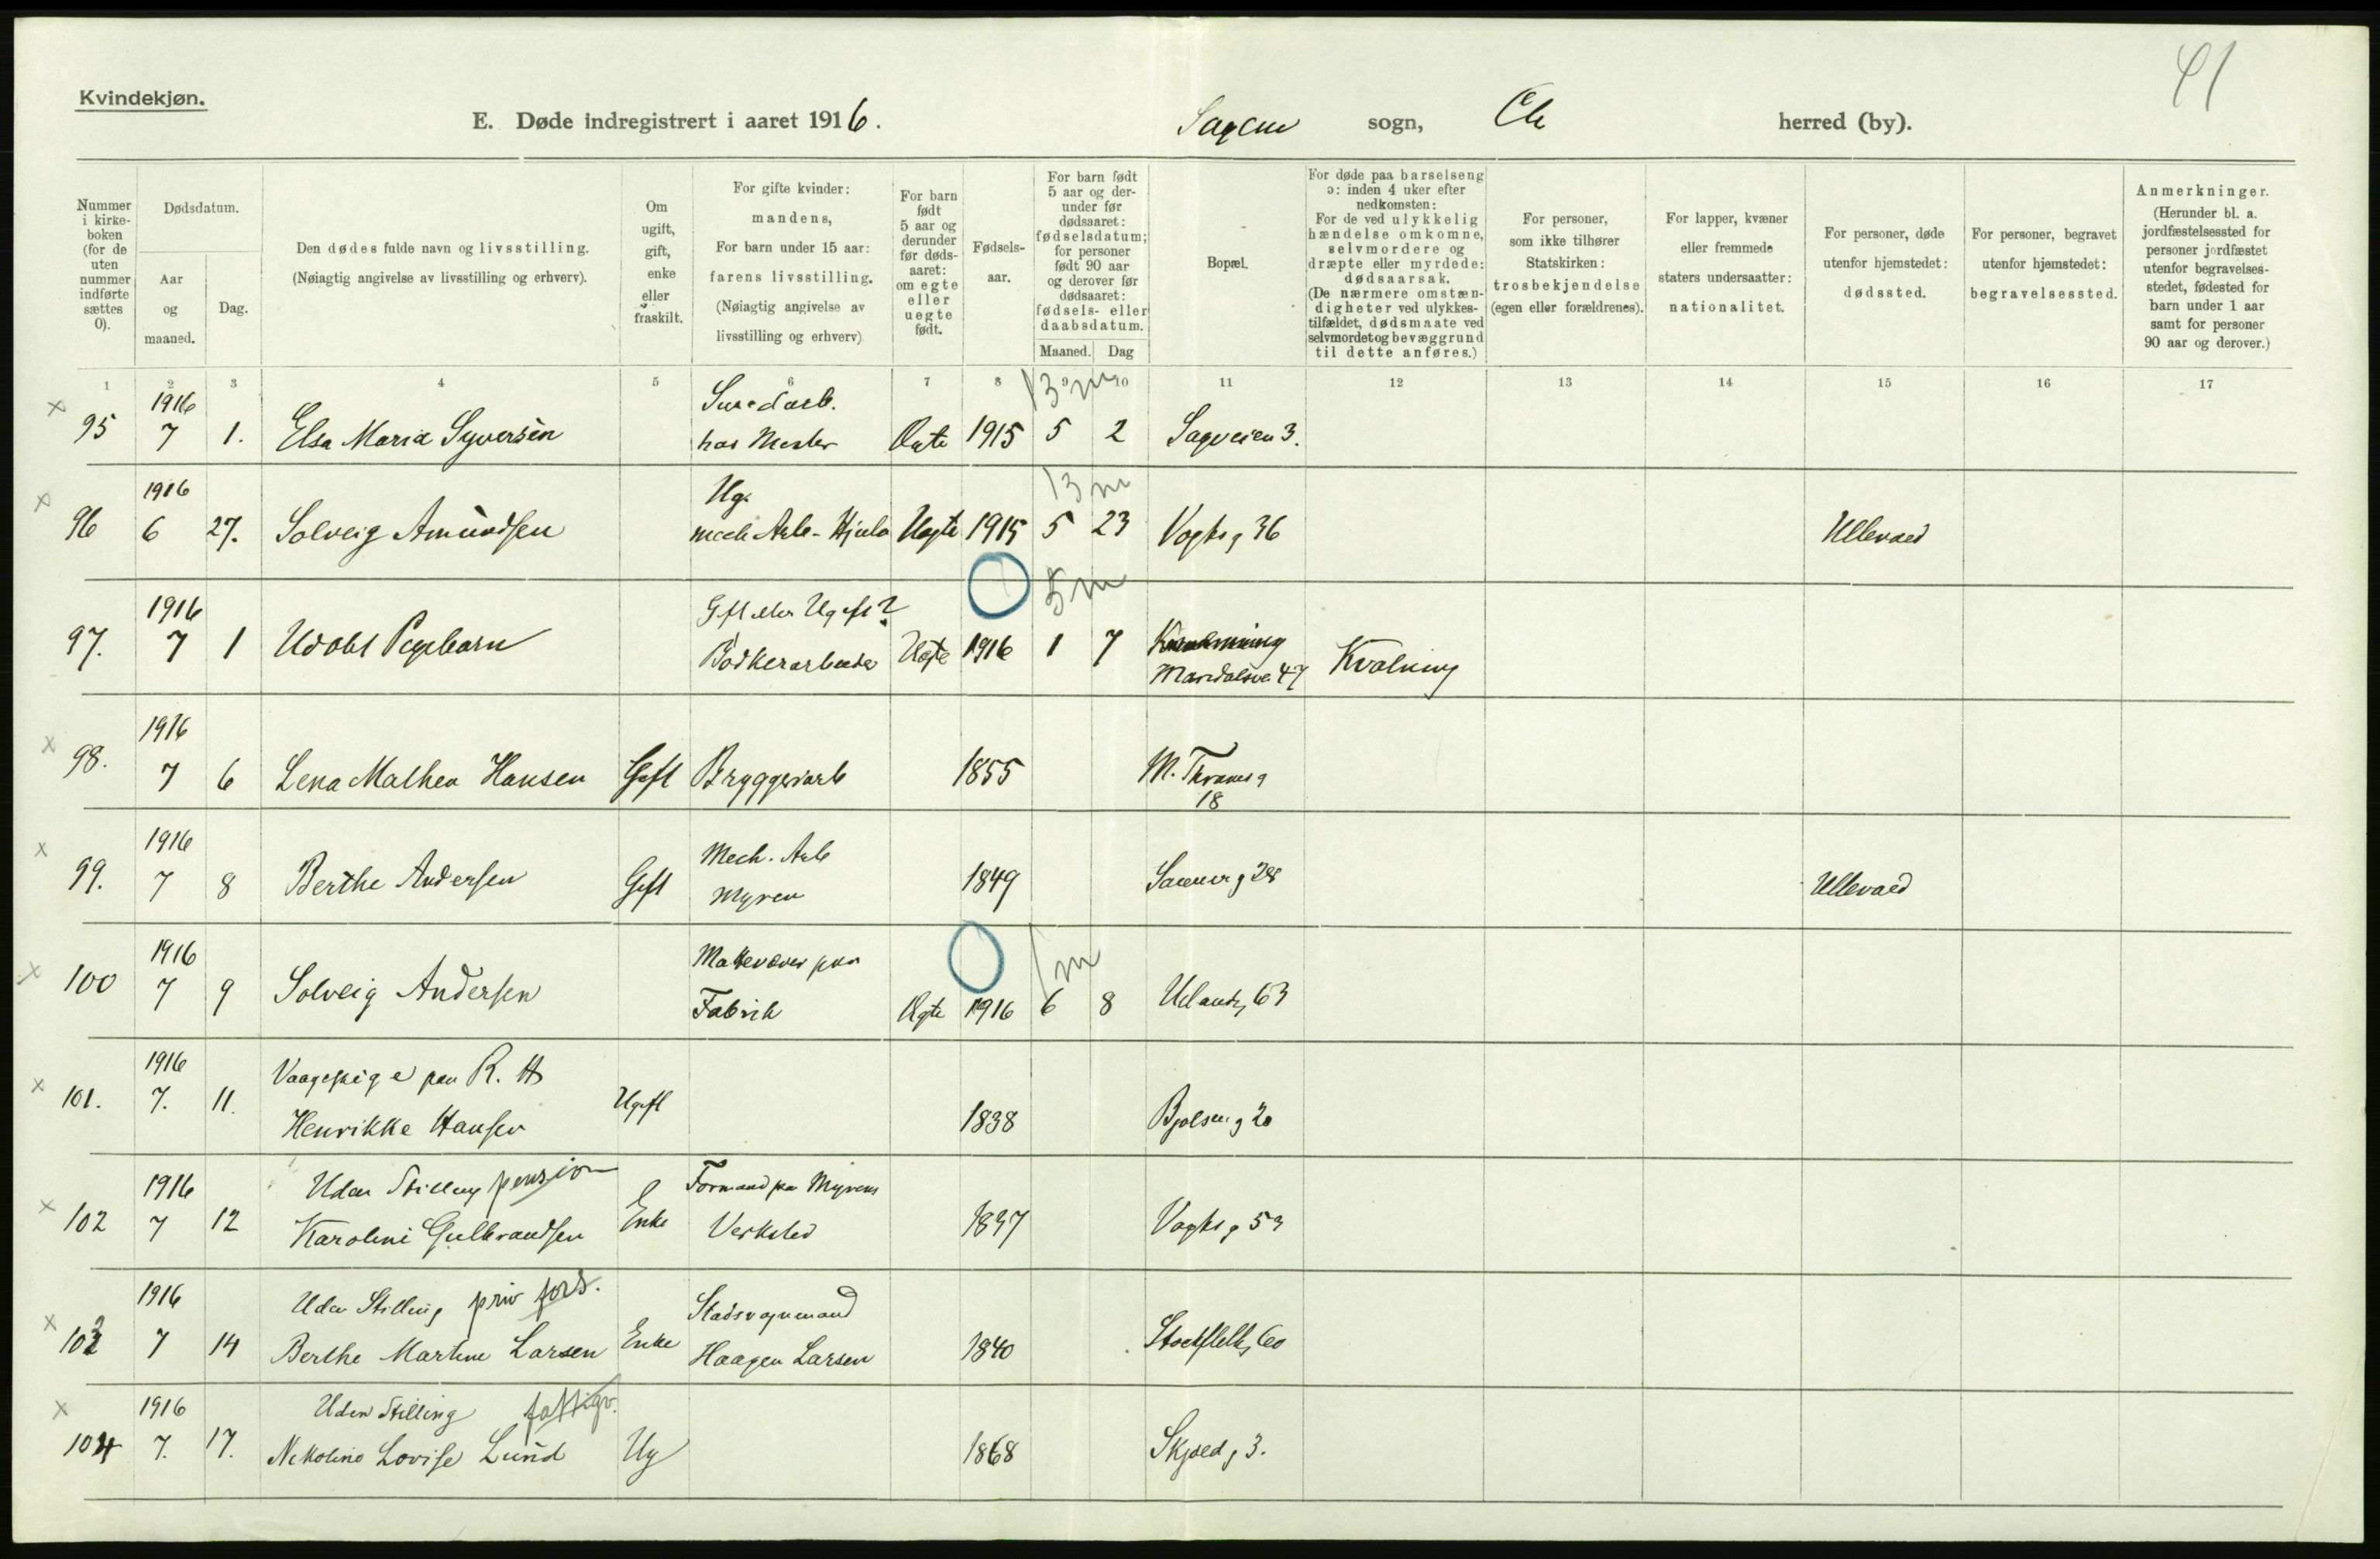 41
Kvindekjøn.
E. Døde indregistrert i aaret 1916. Sagene sogn, Chr herred (by).
Nummer i kirke- boken (for de uten nummer indførte sættes 0).
Dødsdatum.
Aar og maaned.
Dag.
Den dødes fulde navn og livsstilling.
(Nøiagtig angivelse av livsstilling og erhverv).
Om ugift, gift, enke eller fraskilt.
For gifte kvinder:
mandens,
For barn under 15 aar:
farens livsstilling.
(Nøiagtig angivelse av
livsstilling og erhverv)
For barn født 5 aar og derunder før døds- aaret: om egte eller uegte født.
Fødsels- aar.
For barn født 5 aar og der- under før dødsaaret: fødselsdatum; for personer født 90 aar og derover før dødsaaret: fødsels- eller daabsdatum.
Maaned. Dag
Bopæl.
For døde paa barselseng ɔ: inden 4 uker efter nedkomsten:
For de ved ulykkelig hændelse omkomne, selvmordere og dræpte eller myrdede: dødsaarsak.
(De nærmere omstæn- digheter ved ulykkes- tilfældet, dødsmaate ved selvmordet og bevæggrund til dette anføres.)
For personer, som ikke tilhører Statskirken: trosbekjendelse (egen eller forældrenes).
For lapper, kvæner eller fremmede staters undersaatter: nationalitet.
For personer, døde utenfor hjemstedet: dødssted.
For personer, begravet utenfor hjemstedet: begravelsessted.
Anmerkninger.
(Herunder bl. a. jordfæstelsessted for personer jordfæstet utenfor begravelses- stedet, fødested for barn under 1 aar samt for personer 90 aar og derover.)
1 2 3 4 5 6 7 8 9 10 11 12 13 14 15 16 17
x 1916 13 m
95 7 1. Elsa Maria Syversen hos Mester Ægte 1915 5 2 Sagveien 3.
x 1916 Ug. 13 m
96 6 27. Solveig Amundsen mech Arb - Hjula Uegte 1915 5 23 Vogtsg 36 Ullevaal
1916 Gift eller Ugift? 5 m
97. 7 1 Udøbt Pigebarn Bødkerarbeider Uegte 1916 1 7 Maridalsvei 47 Kvælning
x 1916
98. 7 6 Lena Mathea Hansen Gift Bryggeriarb 1855 M. Thranesg
18
x 1916 Mech. Arb
99. 7 8 Berthe Andersen Gift Myren 1849 28 Ullevaal
x 1916 paa 1 m
100 7 9 Solveig Andersen Fabrik Ægte 1916 6 8 Uelandsg 63
x 1916 Vaagepige paa R. H
101. 7. 11. Henrikke Hansen Ugift 1838 Bjølseng 20
x 1916 Uden Stilling pension Formand paa Myrens
102 7 12 Karoline Gulbrandsen Enke Verksted 1837 Vogtsg 53
x 1916 Uden Stilling priv fors. Stadsvognmand
103 7 14 Berthe Martine Larsen Enke Haagen Larsen 1840 Stockfletsg 60
x 1916 Uden Stilling fattigv.
104 7. 17. Nikoline Lovise Lund Ug 1868 Skjoldg 3.